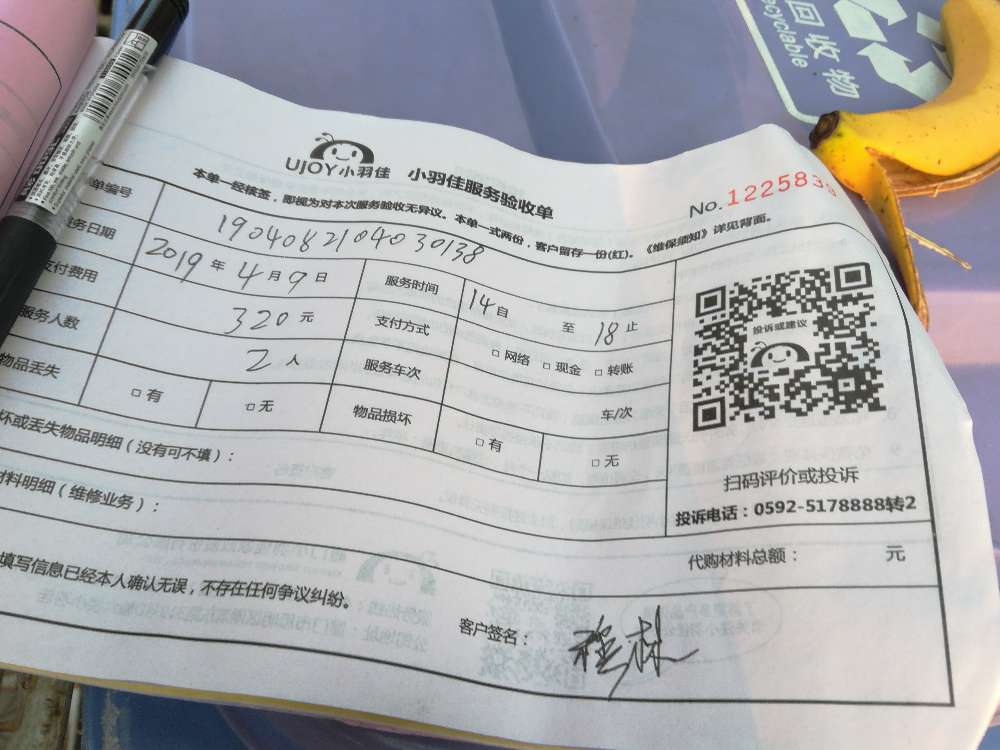 回收物
Recyclable
UJOY小羽佳 小羽佳服务验收单
No.122583
本单一经核签，即视为对本次服务验收无异议。本单一式两份，客户留存一份(红)。《维保须知》详见背面。
单编号 1904082104030138
务日期 2019 年 4 月 9 日 服务时间 14 自 至 18 止
支付费用 320 元 支付方式 □ 网络 □ 现金 □ 转账
服务人数 2 人 服务车次 车/次
物品丢失 □ 有 □ 无 物品损坏 □ 有 □ 无
投诉或建议
扫码评价或投诉
投诉电话：0592-5178888转2
坏或丢失物品明细（没有可不填）：
材料明细（维修业务）：
代购材料总额： 元
填写信息已经本人确认无误，不存在任何争议纠纷。
客户签名： 程林